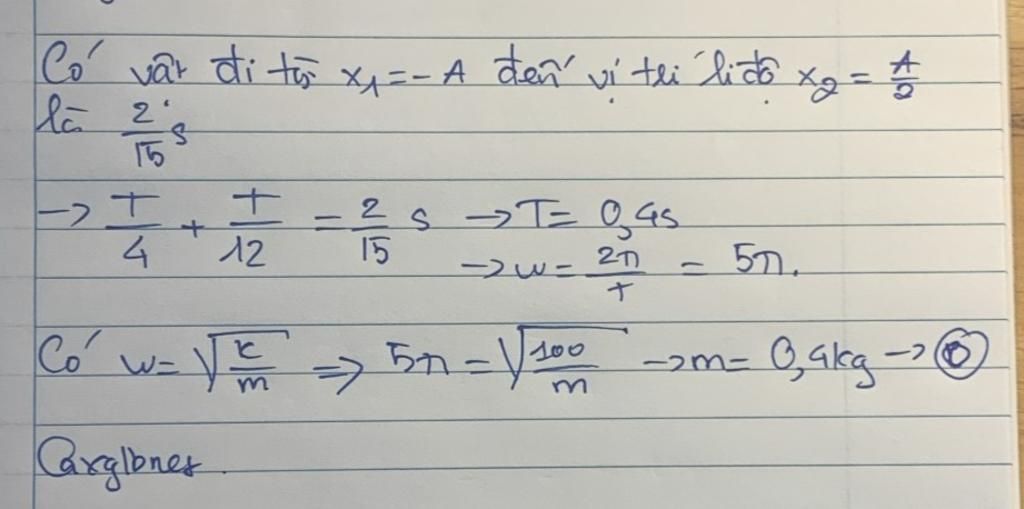 Có vật đi từ x₁ = -A đến vị trí li độ x₂ = A/2
là 2/15 s
→ T/4 + T/12 = 2/15 s → T = 0,4s
→ ω = 2π/T = 5π.
Có ω = √(k/m) ⇒ 5π = √(100/m) → m = 0,4kg → D